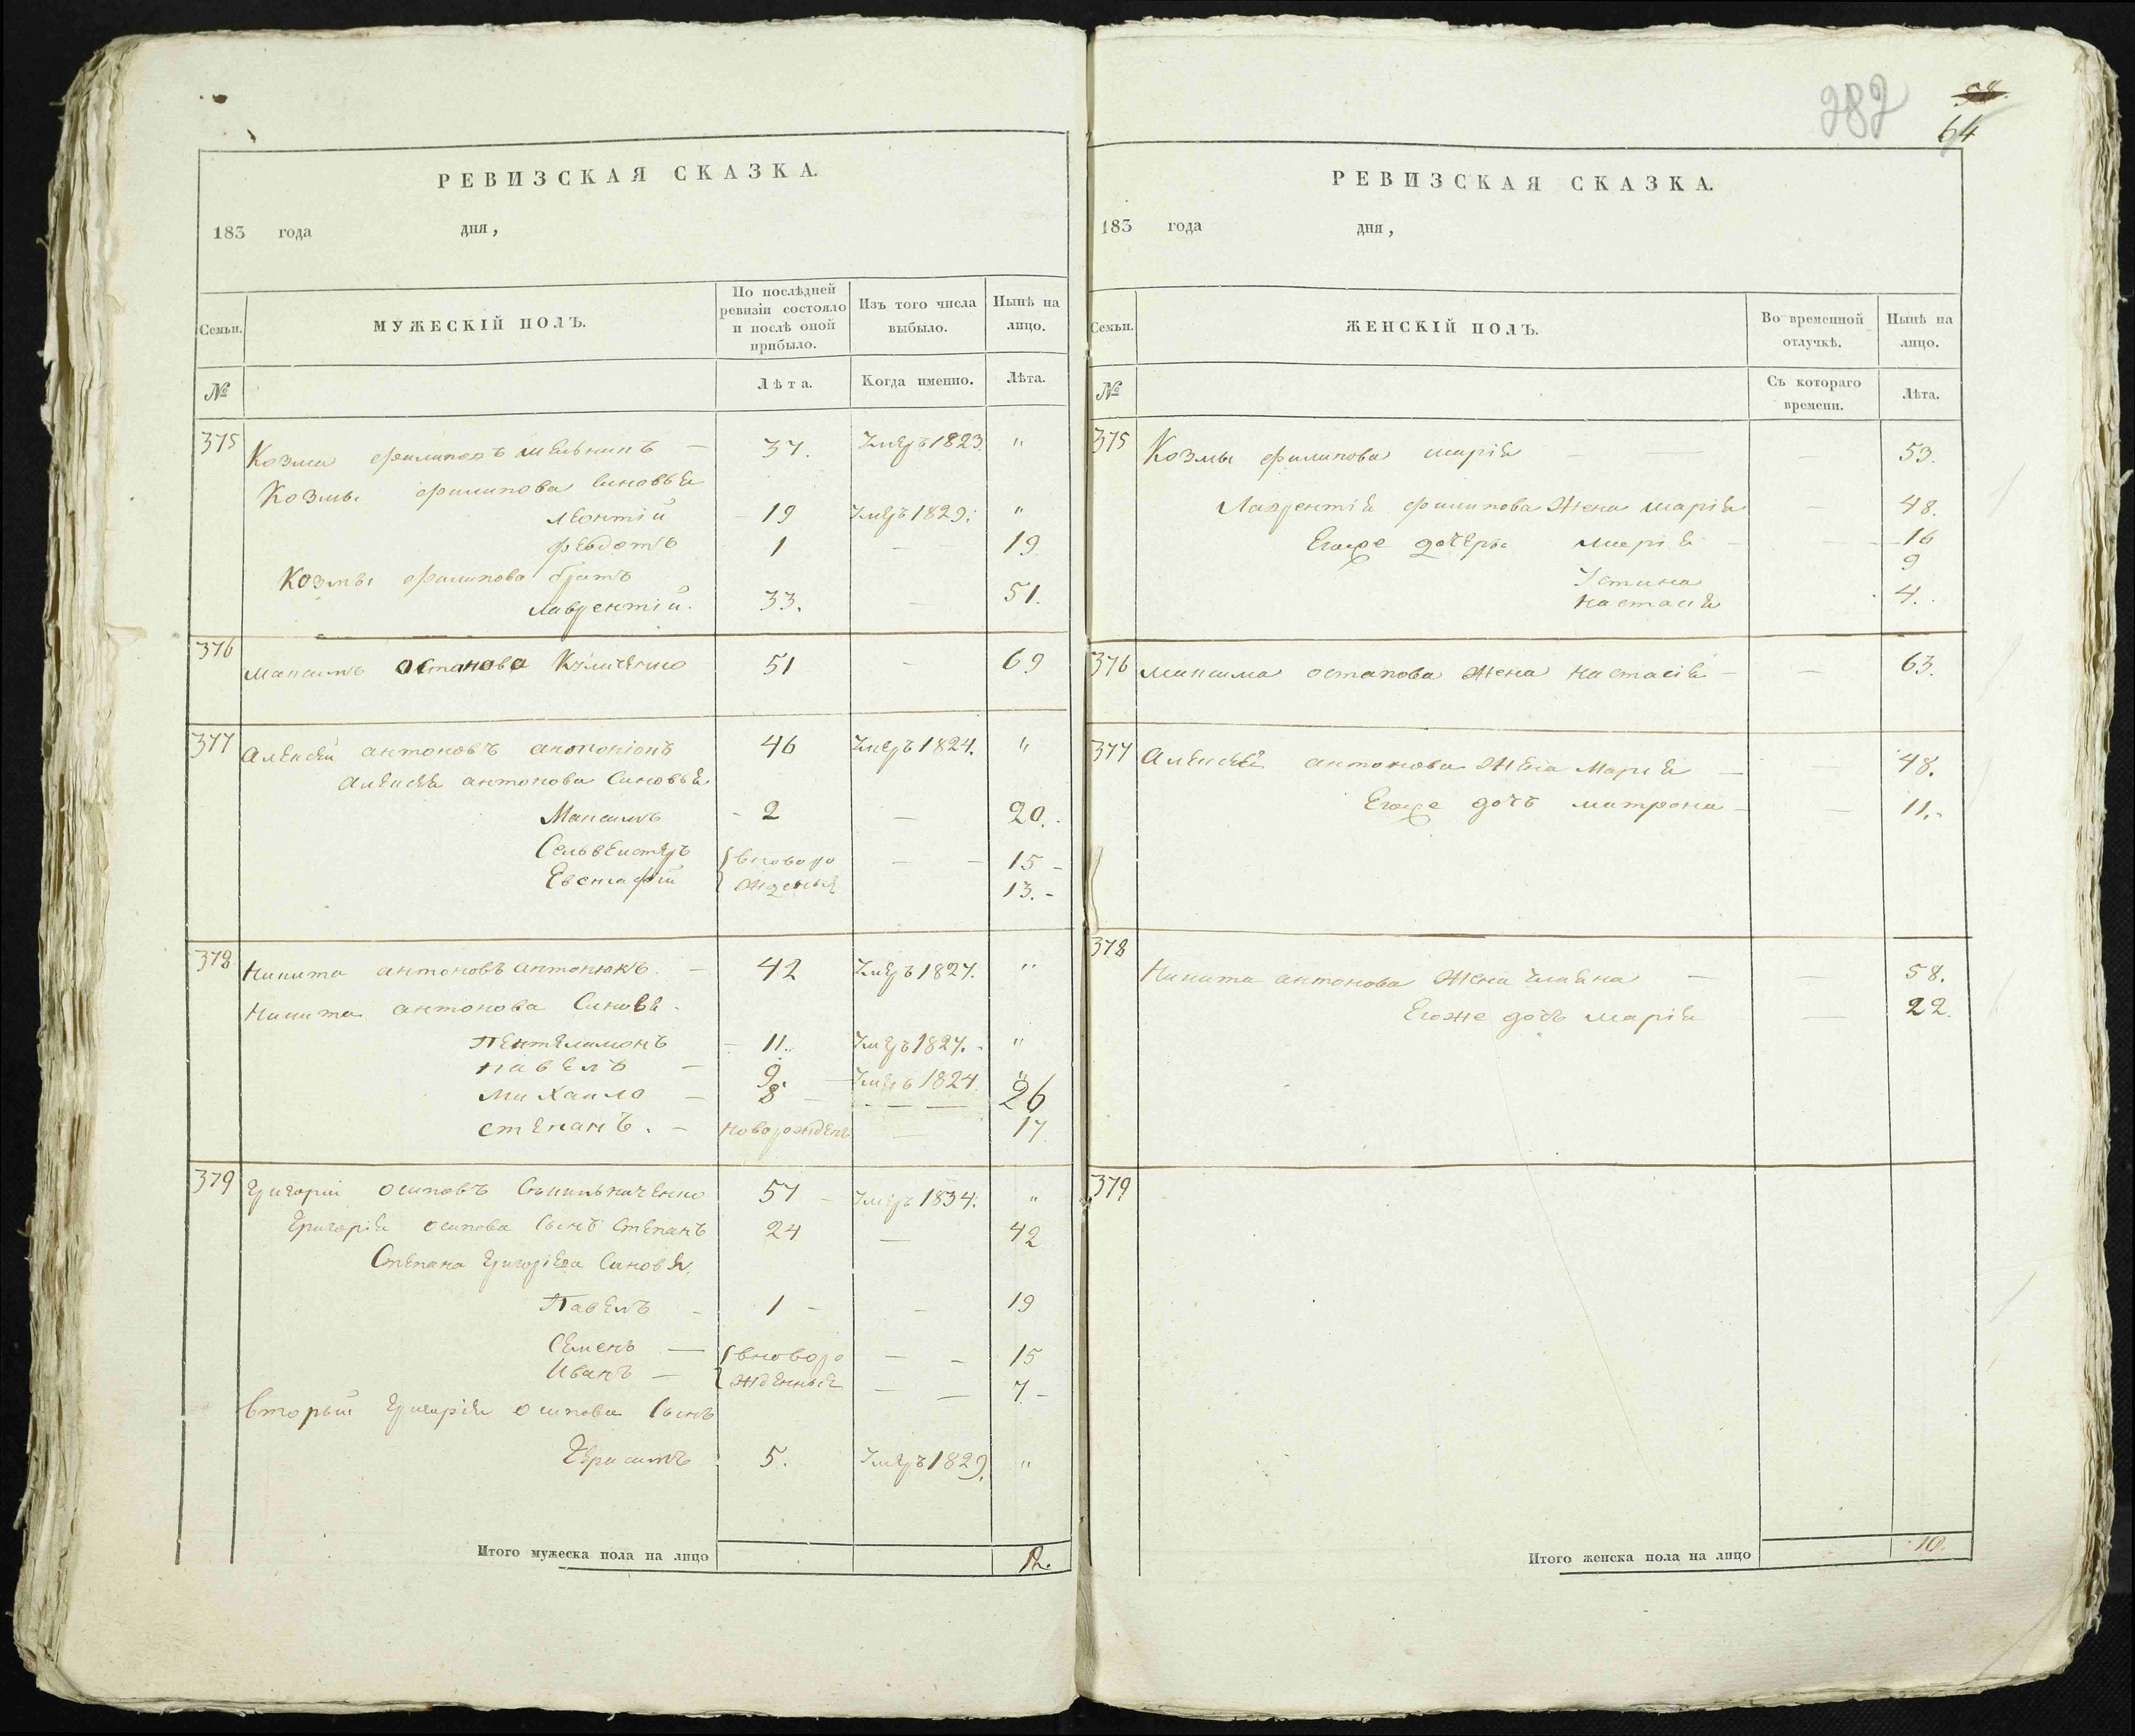 282
58.
64
РЕВИЗСКАЯ СКАЗКА.
183 года дня,
Семьи.
МУЖЕСКІЙ ПОЛЪ.
По послѣдней ревизіи состояло и послѣ оной прибыло.
Изъ того числа выбыло.
Нынѣ на лицо.
№
Лѣта.
Когда именно.
Лѣта.
375 Козма Филиповъ Мельникъ — 37. Умеръ 1823 "
Козмы Филипова Синовья
Леонтій 19 Умеръ 1829. "
Федотъ 1 — 19
Козмы Филипова братъ
Лаврентій. 33. — 51.
376 Максимъ Остапова 51 — 69
377 Алексей Антоновъ 46 Умеръ 1824. "
Алексея Антонова Синовья
Максимъ - 2 — 20.
Сельвестеръ { вноворо — 15 -
Евстафій жденыя 13. -
378 Никита Антоновъ Антонюкъ. — 42 Умеръ 1827. "
Никита Антонова Синовя.
Пентелимонъ - 11. Умеръ 1827. "
Павелъ — 9. Умеръ 1824 "
Михаило — 8 — 26
Степанъ. — новорожденъ — 17
379 Григорій Осиповъ 57 Умеръ 1834. "
Григорія Осипова Сынъ Степанъ 24 — 42
Степана Григоріева Синовя,
Павелъ - 1 - — 19
Семенъ — { вноворо — 15
Иванъ — жденныя — 7 -
Вторый Григорія Осипова Сынъ
Герасимъ 5. Умеръ 1829. "
Итого мужеска пола на лицо 12.
РЕВИЗСКАЯ СКАЗКА.
183 года дня,
Семьи.
ЖЕНСКІЙ ПОЛЪ.
Во временной отлучкѣ.
Нынѣ на лицо.
№
Съ котораго времени.
Лѣта.
375 Козмы Филипова Марія — 53.
Лаврентія Филипова Жена Марія — 48.
Егоже дочеры Марія — 16
Устина 9
Настасія 4.
376 Максима Остапова Жена Настасія — 63.
377 Алексея Антонова Жена Марія — 48.
Егоже дочъ Матрона — 11.
378
Никита Антонова Жена — 58.
Егоже дочъ Марія — 22.
379
Итого женска пола на лицо 10.